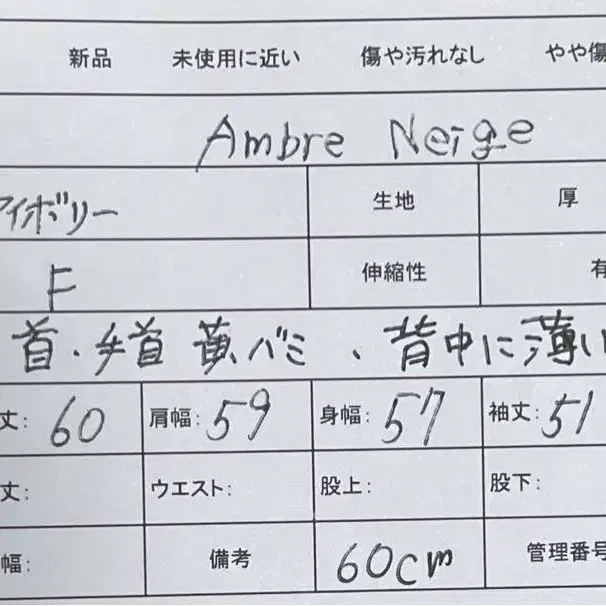 新品 未使用に近い 傷や汚れなし やや傷
Ambre Neige
アイボリー 生地 厚
F 伸縮性 有
首・手首 黄バミ、背中に薄い
丈: 60 肩幅: 59 身幅: 57 袖丈: 51
丈: ウエスト: 股上: 股下:
幅: 備考 60cm 管理番号